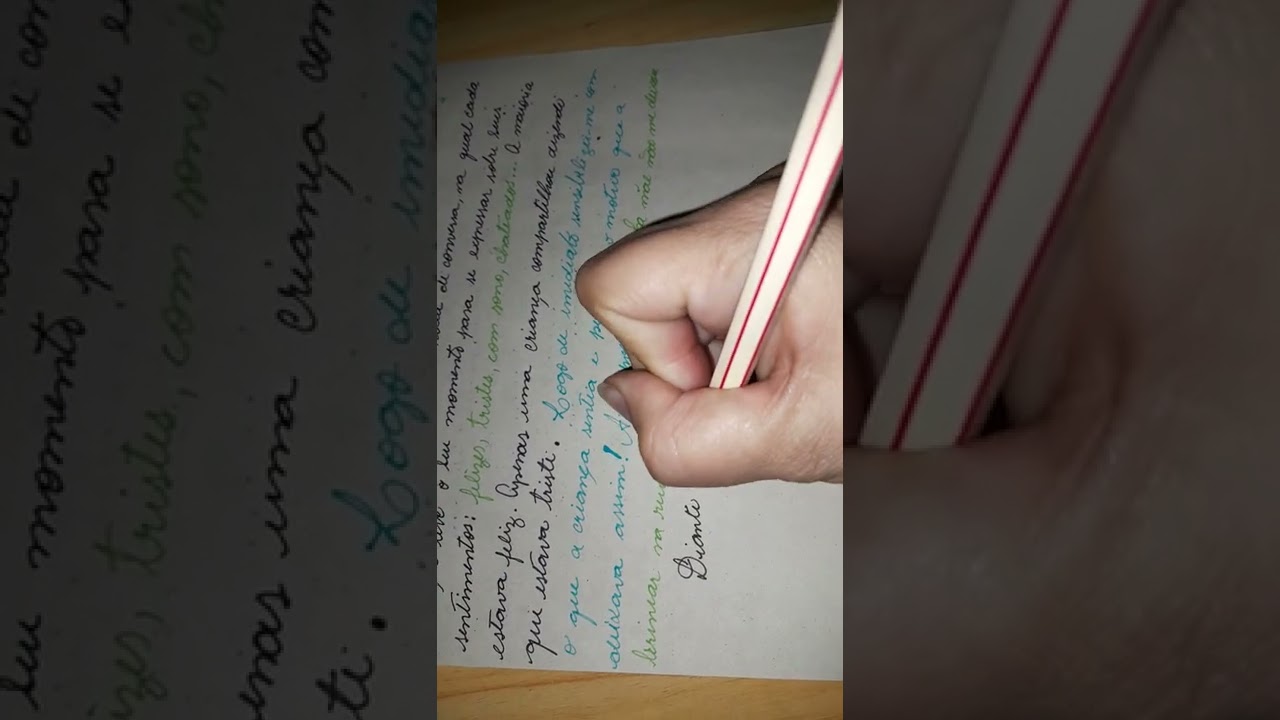 teve o seu momento para se expressar sobre seus
sentimentos: felizes, tristes, com sono, chateados... A maioria
estava feliz. Apenas uma criança compartilhou dizendo
que estava triste. Logo de imediato sensibilizei-me com
o que a criança sentia e o motivo que a
deixava assim! mãe não me deixa
brincar na rua
Diante